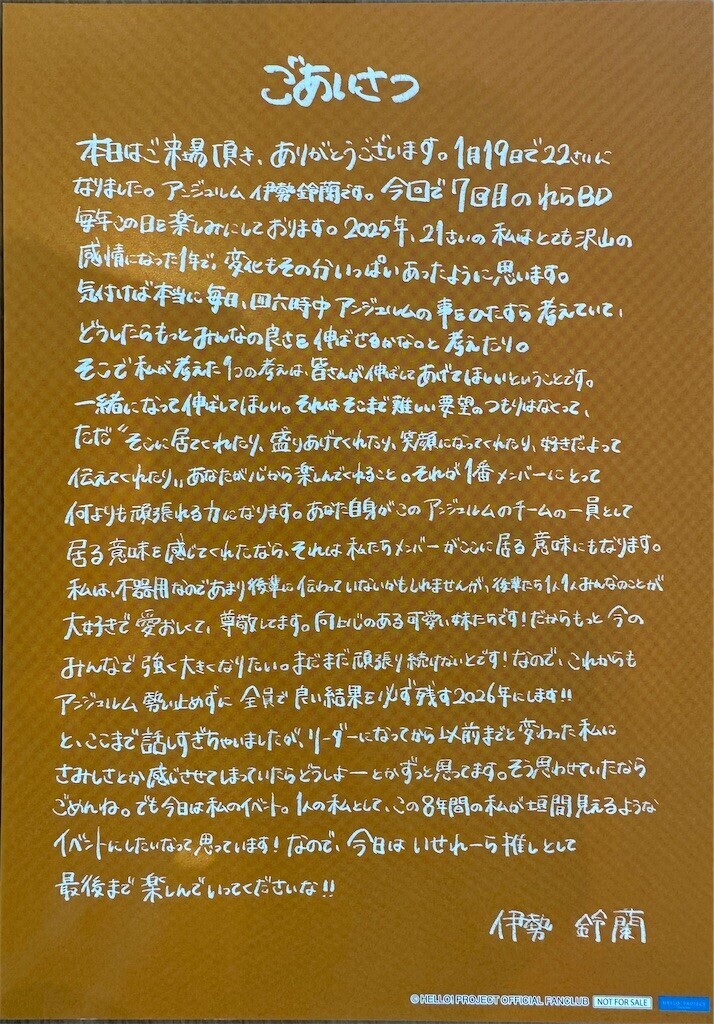 ごあいさつ
本日はご来場頂き、ありがとうございます。1月19日で22さいに
なりました。アンジュルム 伊勢鈴蘭です。今回で7回目のれらBD
毎年この日を楽しみにしております。2025年、21さいの私はとても沢山の
感情になった1年で、変化もその分いっぱいあったように思います。
気付けば本当に毎日、四六時中アンジュルムの事をひたすら考えていて、
どうしたらもっとみんなの良さを伸ばせるかな。と考えたり。
そこで私が考えた1つの考えは、皆さんが伸ばしてあげてほしいということです。
一緒になって伸ばしてほしい。それはそこまで難しい要望のつもりはなくって、
ただ“そこに居てくれたり、盛りあげてくれたり、笑顔になってくれたり、好きだよって
伝えてくれたり„あなたが心から楽しんでくれること。それが1番メンバーにとって
何よりも頑張れる力になります。あなた自身がこのアンジュルムのチームの一員として
居る意味を感じてくれたなら、それは私たちメンバーがここに居る意味にもなります。
私は、不器用なのであまり後輩に伝わっていないかもしれませんが、後輩たち1人1人みんなのことが
大好きで愛おしくて、尊敬してます。向上心のある可愛い妹たちです!だからもっと今の
みんなで強く大きくなりたい。まだまだ頑張り続けないとです!なので、これからも
アンジュルム勢い止めずに全員で良い結果を必ず残す2026年にします!!
と、ここまで話しすぎちゃいましたが、リーダーになってから以前までと変わった私に
さみしさとか感じさせてしまっていたらどうしよーとかずっと思ってます。そう思わせていたなら
ごめんね。でも今日は私のイベント。1人の私として、この8年間の私が垣間見えるような
イベントにしたいなって思っています!なので、今日はいせれーら推しとして
最後まで楽しんでいってくださいな!!
伊勢 鈴蘭
© HELLO! PROJECT OFFICIAL FANCLUB NOT FOR SALE